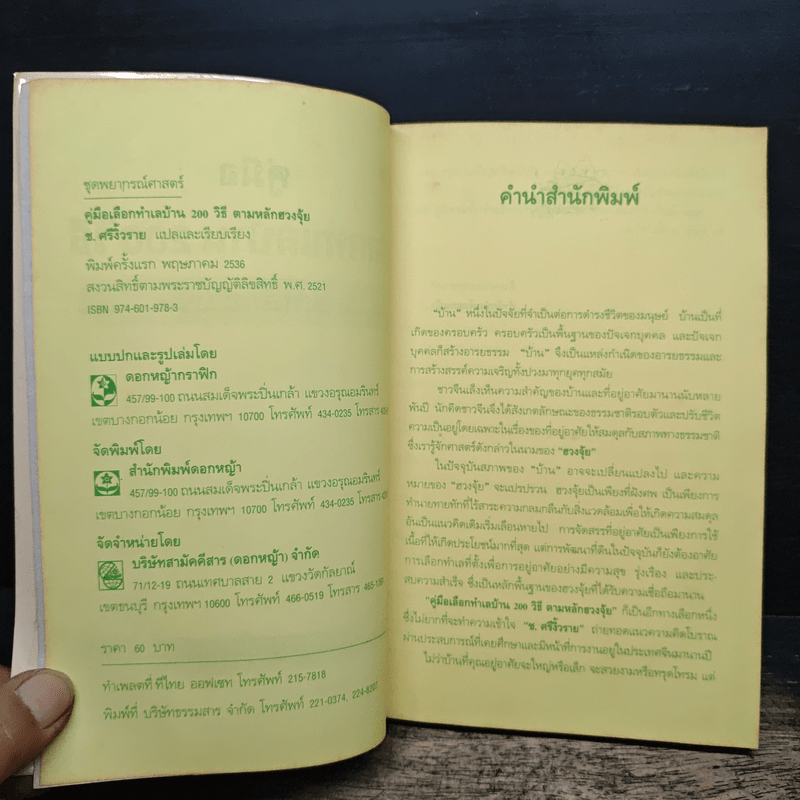 ชุดพยากรณ์ศาสตร์
คู่มือเลือกทำเลบ้าน 200 วิธี ตามหลักฮวงจุ้ย
ช. ศรีงิ้วราย แปลและเรียบเรียง
พิมพ์ครั้งแรก พฤษภาคม 2536
สงวนสิทธิ์ตามพระราชบัญญัติลิขสิทธิ์ พ.ศ. 2521
ISBN 974-601-978-3
แบบปกและรูปเล่มโดย
ดอกหญ้ากราฟิก
457/99-100 ถนนสมเด็จพระปิ่นเกล้า แขวงอรุณอมรินทร์
เขตบางกอกน้อย กรุงเทพฯ 10700 โทรศัพท์ 434-0235 โทรสาร
จัดพิมพ์โดย
สำนักพิมพ์ดอกหญ้า
457/99-100 ถนนสมเด็จพระปิ่นเกล้า แขวงอรุณอมรินทร์
เขตบางกอกน้อย กรุงเทพฯ 10700 โทรศัพท์ 434-0235 โทรสาร
จัดจำหน่ายโดย
บริษัทสามัคคีสาร (ดอกหญ้า) จำกัด
71/12-19 ถนนเทศบาลสาย 2 แขวงวัดกัลยาณ์
เขตธนบุรี กรุงเทพฯ 10600 โทรศัพท์ 466-0519 โทรสาร
ราคา 60 บาท
ทำเพลตที่ ทีไทย ออฟเซท โทรศัพท์ 215-7818
พิมพ์ที่ บริษัทธรรมสาร จำกัด โทรศัพท์ 221-0374,
คำนำสำนักพิมพ์
"บ้าน" หนึ่งในปัจจัยที่จำเป็นต่อการดำรงชีวิตของมนุษย์ บ้านเป็นที่
เกิดของครอบครัว ครอบครัวเป็นพื้นฐานของปัจเจกบุคคล และปัจเจก
บุคคลก็สร้างอารยธรรม "บ้าน" จึงเป็นแหล่งกำเนิดของอารยธรรมและ
การสร้างสรรค์ความเจริญทั้งปวงมาทุกยุคทุกสมัย
ชาวจีนเล็งเห็นความสำคัญของบ้านและที่อยู่อาศัยมานานนับหลาย
พันปี นักคิดชาวจีนจึงได้สังเกตลักษณะของธรรมชาติรอบตัวและปรับชีวิต
ความเป็นอยู่โดยเฉพาะในเรื่องของที่อยู่อาศัยให้สมดุลกับสภาพทางธรรมชาติ
ซึ่งเรารู้จักศาสตร์ดังกล่าวในนามของ "ฮวงจุ้ย"
ในปัจจุบันสภาพของ "บ้าน" อาจจะเปลี่ยนแปลงไป และความ
หมายของ "ฮวงจุ้ย" จะแปรปรวน ฮวงจุ้ยเป็นเพียงที่ฝังศพ เป็นเพียงการ
ทำนายทายทักที่ไร้สาระความกลมกลืนกับสิ่งแวดล้อมเพื่อให้เกิดความสมดุล
อันเป็นแนวคิดเดิมเริ่มเลือนหายไป การจัดสรรที่อยู่อาศัยเป็นเพียงการใช้
เนื้อที่ให้เกิดประโยชน์มากที่สุด แต่การพัฒนาที่ดินในปัจจุบันก็ยังต้องอาศัย
การเลือกทำเลที่ตั้งเพื่อการอยู่อาศัยอย่างมีความสุข รุ่งเรือง และประ-
สบความสำเร็จ ซึ่งเป็นหลักพื้นฐานของฮวงจุ้ยที่ได้รับความเชื่อถือมานาน
"คู่มือเลือกทำเลบ้าน 200 วิธี ตามหลักฮวงจุ้ย" ก็เป็นอีกทางเลือกหนึ่ง
ซึ่งไม่ยากที่จะทำความเข้าใจ "ช. ศรีงิ้วราย" ถ่ายทอดแนวความคิดโบราณ
ผ่านประสบการณ์ที่เคยศึกษาและมีหน้าที่การงานอยู่ในประเทศจีนมานานปี
ไม่ว่าบ้านที่คุณอยู่อาศัยจะใหญ่หรือเล็ก จะสวยงามหรือทรุดโทรม แต่